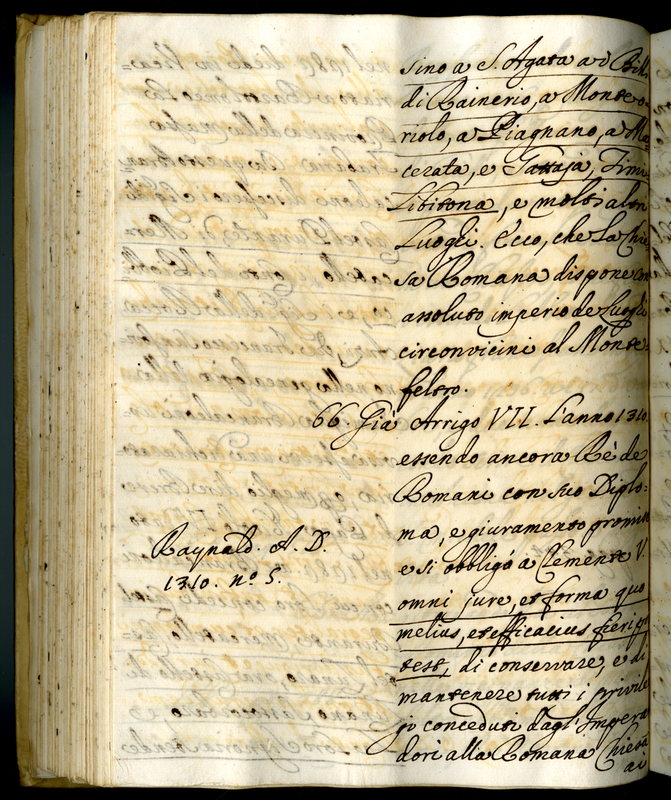 sino a S. Agata a i
di Rainerio, a Monte
riolo, a Piagnano, a Ma
cerata, e Tattaja,
Libitona, e molti altri
Luoghi. Ecco, che La Chie
sa Romana dispone con
assoluto imperio de Luoghi
circonvicini al Monte
feltro.
66. Già Arrigo VII. L'anno 1310.
essendo ancora Rè de
Romani con suo Diplo-
ma, e giuramento promise
e si obbligò a Clemente V.
omni jure, et forma quo
melius, et efficacius fieri po
test, di conservare, e di
mantenere tutti i privile
gi conceduti dagl' Impera
dori alla Romana Chiesa
ai
Raynald. A. D.
1310. nº 5.